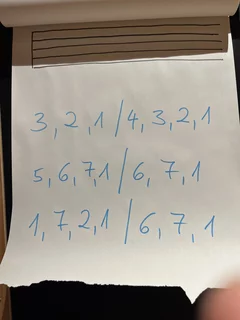 3, 2, 1 / 4, 3, 2, 1
5, 6, 7, 1 / 6, 7, 1
1, 7, 2, 1 / 6, 7, 1